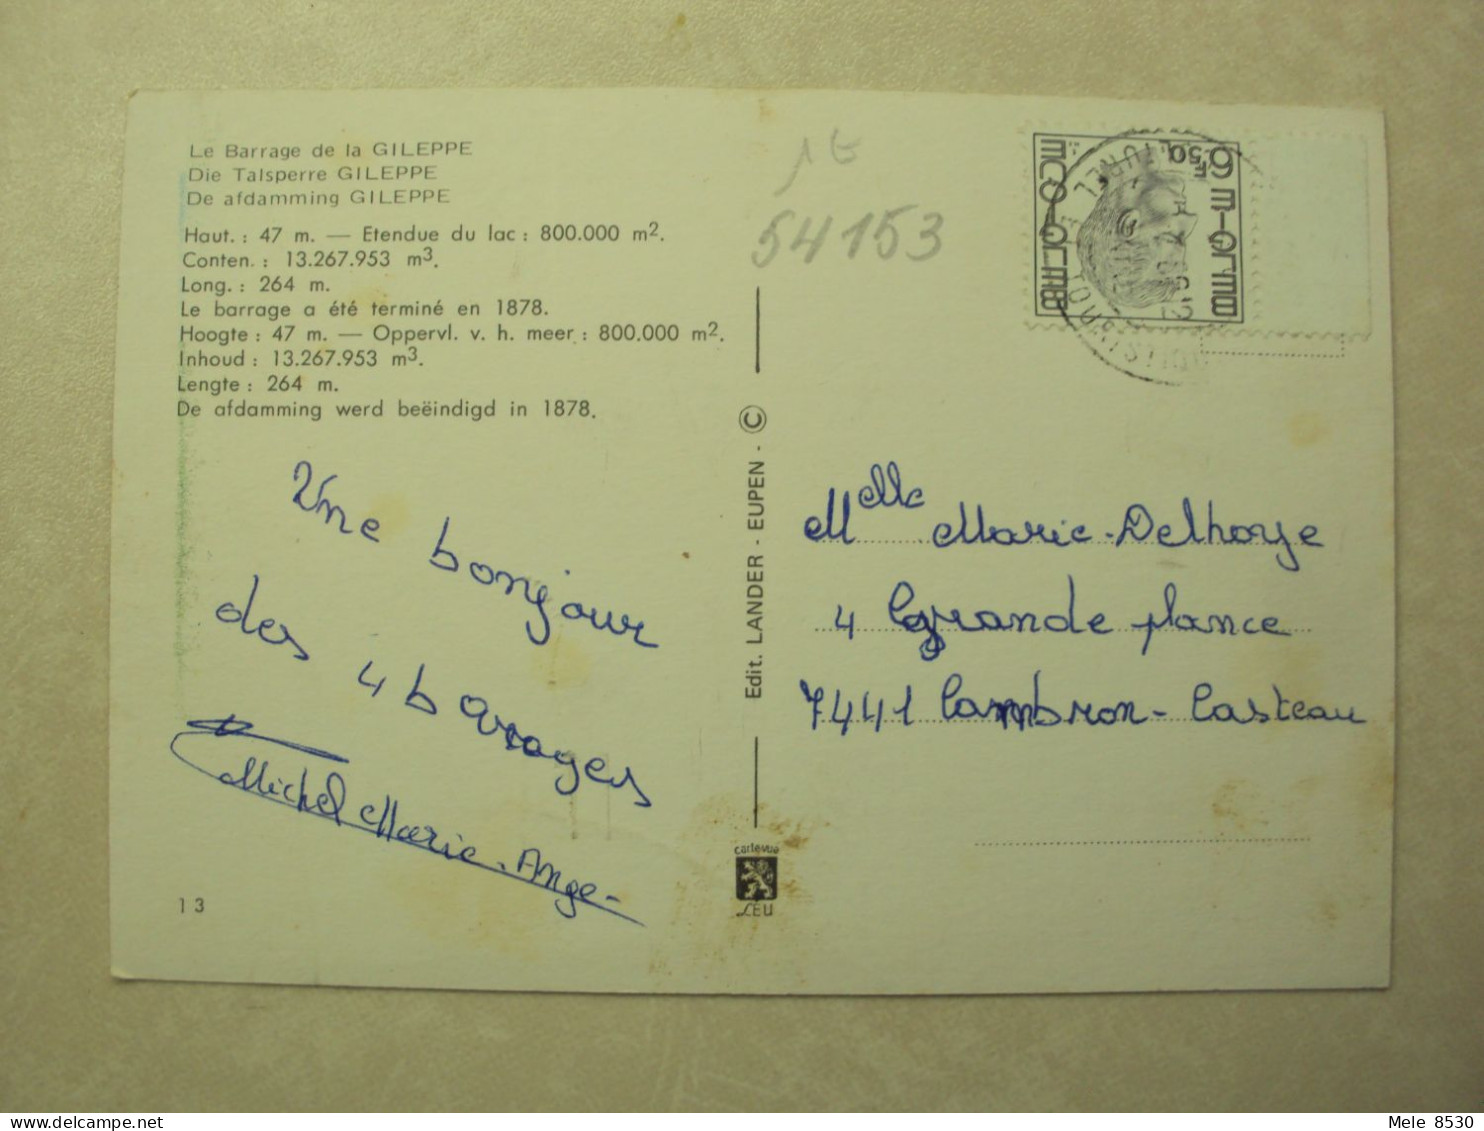 Le Barrage de la GILEPPE
Die Talsperre GILEPPE
De afdamming GILEPPE
Haut. : 47 m. — Etendue du lac : 800.000 m².
Conten. : 13.267.953 m³.
Long. : 264 m.
Le barrage a été terminé en 1878.
Hoogte : 47 m. — Oppervl. v. h. meer : 800.000 m².
Inhoud : 13.267.953 m³.
Lengte : 264 m.
De afdamming werd beëindigd in 1878.
Une bonjour
des 4 barages
Michel Marie-Ange-
13
1€
54153
Edit. LANDER - EUPEN - ©
cartevue
LEU
BELGIE
BELGIQUE
6F50
Melle Marie-Delhoye
4 Grande plance
7441 Cambron-Casteau
Mele 8530